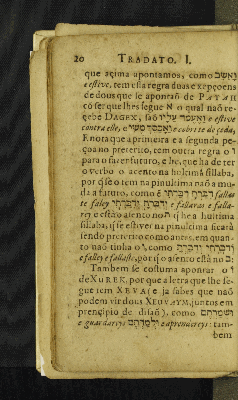 20 TRADATO. I.
que açima apontamos, como וָאֵשֵׁב
e estive, tem esta regra duas exepçoens
de dous que se aponraõ de PATAH
cõ ser que lhes segue א o qual naõ re-
çebe DAGEX, saõ e estive
contra elle, e e cobri te de seda,
E nota que a primeira e a segunda pe-
çoa no preterito, tem outra regra o ו
para o fazer futuro, e he, que ha de ter
o verbo o acento na holtima sillaba,
por q̃ se o tem na pinultima naõ a mu-
da a futuro, como fallas
te falley e fallaras e falla-
rey e estão acento no ת q̃ he a huitima
sillaba, q̃ se estiver na pinultima ficará
sendo preterito como antes, em quan-
to naõ tinha o ו, como
e falley e fallaste, por q̃ o asento està no
Tambem se costuma apontar o ו
de XUREK, por que a letra que lhe se-
gue tem XEVA (e ja sabes que naõ
podem vir dous XEUVAYM, juntos em
prençipio de disaõ), como וּשְׁמַרְתֶּם
e guardareys e aprenareys: tam-
bem